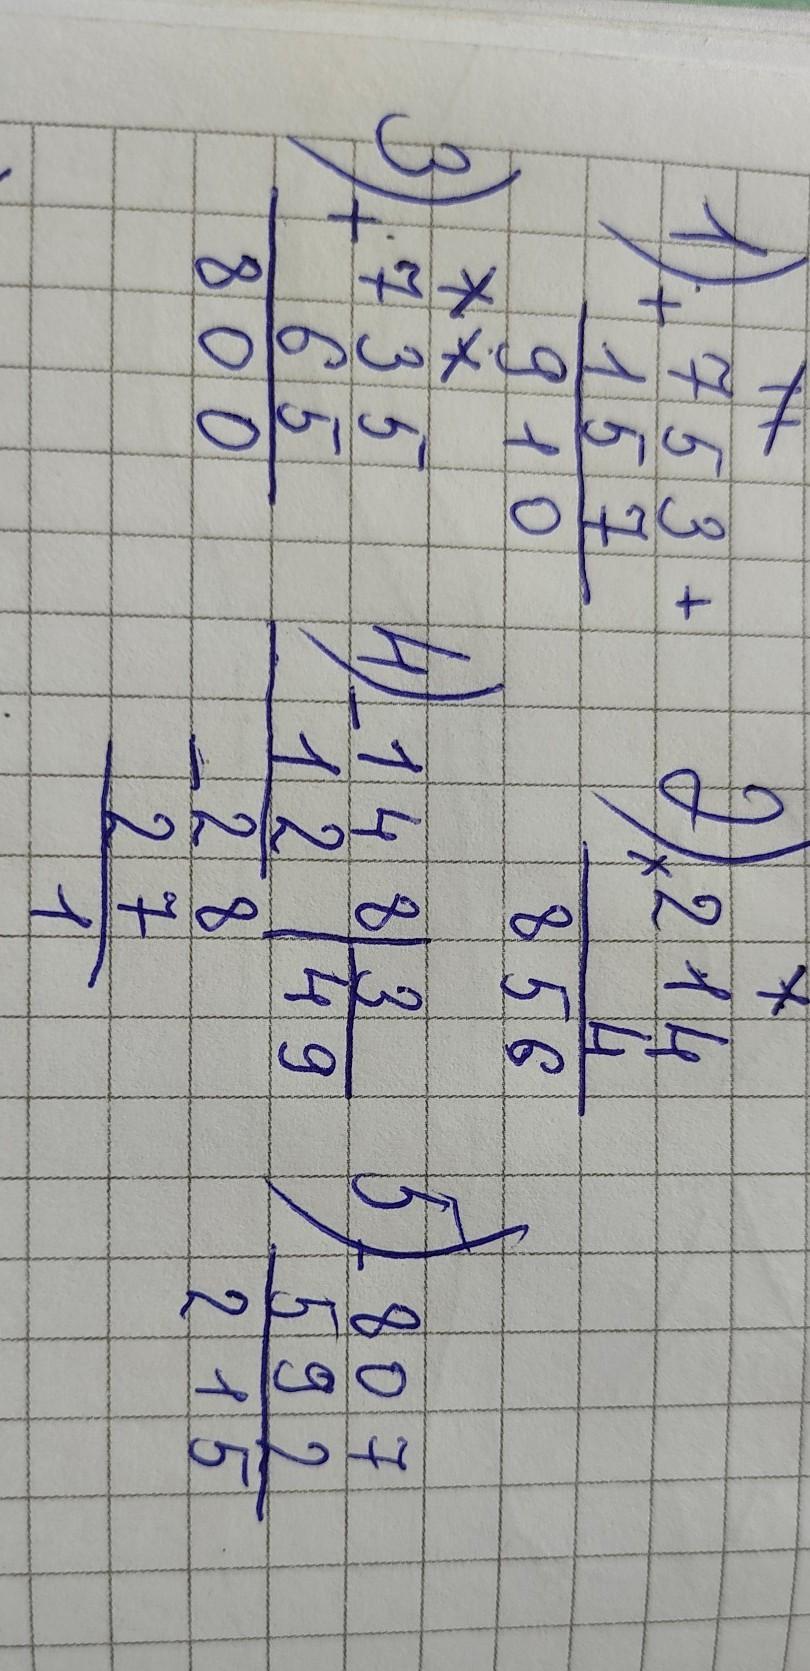 1) + 753 +
157
910
2) × 214
4
856
3) + 735
65
800
4) - 148 | 3
12 | 49
- 28
27
1
5) - 807
592
215